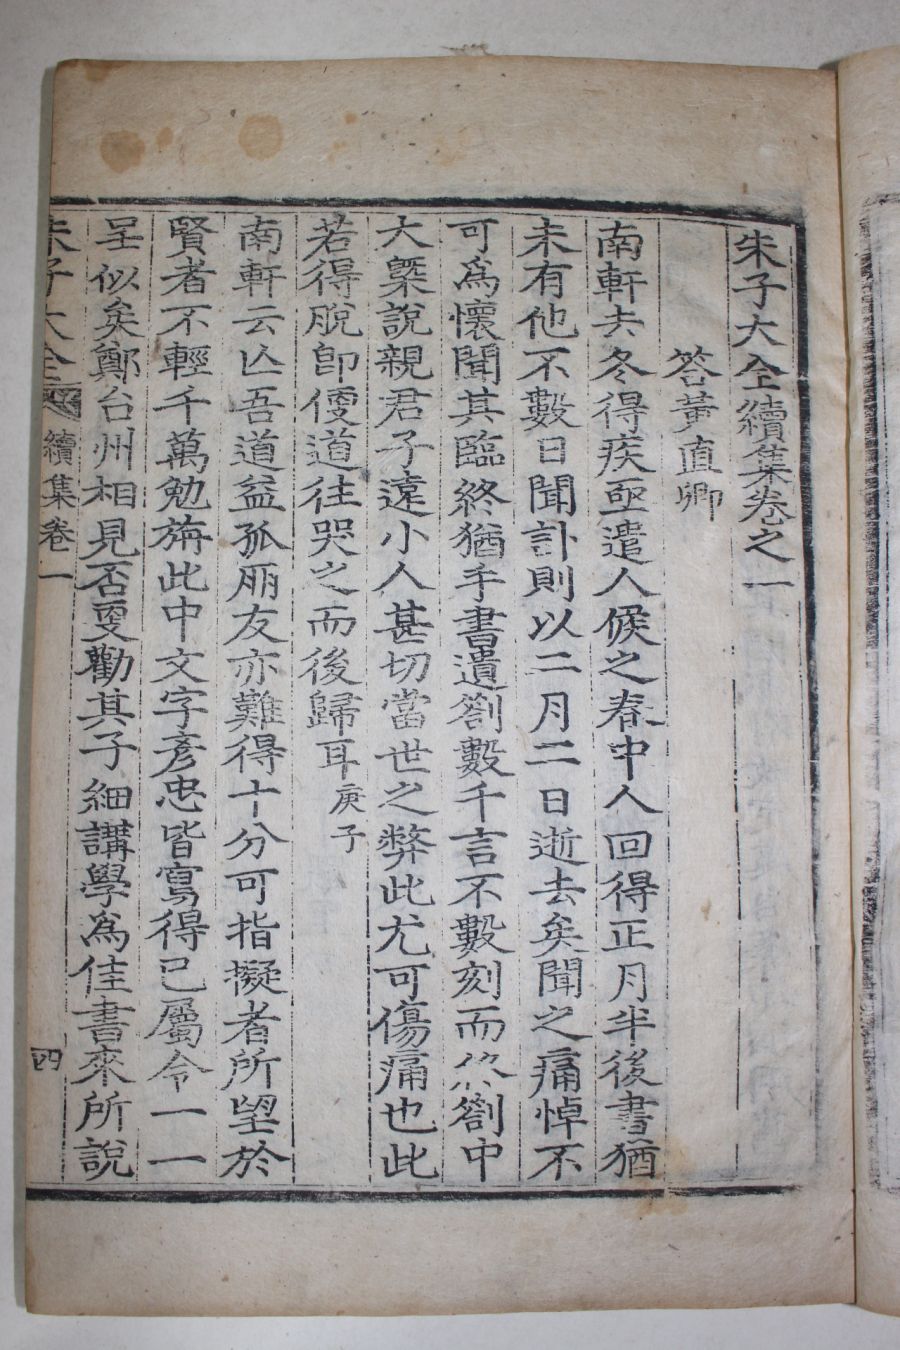 朱子大全續集卷之一
答黃直卿
南軒去冬得疾亟遣人候之春中人回得正月半後書猶
未有他不數日聞訃則以二月二日逝去矣聞之痛悼不
可爲懷聞其臨終猶手書遺劄數千言不數刻而終劄中
大槩說親君子遠小人甚切當世之弊此尤可傷痛也此
若得脫卽便道往哭之而後歸耳庚子
南軒云亾吾道益孤朋友亦難得十分可指擬者所望於
賢者不輕千萬勉旃此中文字彥忠皆寫得已屬令一一
呈似矣鄭台州相見否更勸其子細講學爲佳書來所說
朱子大全 續集卷一 四